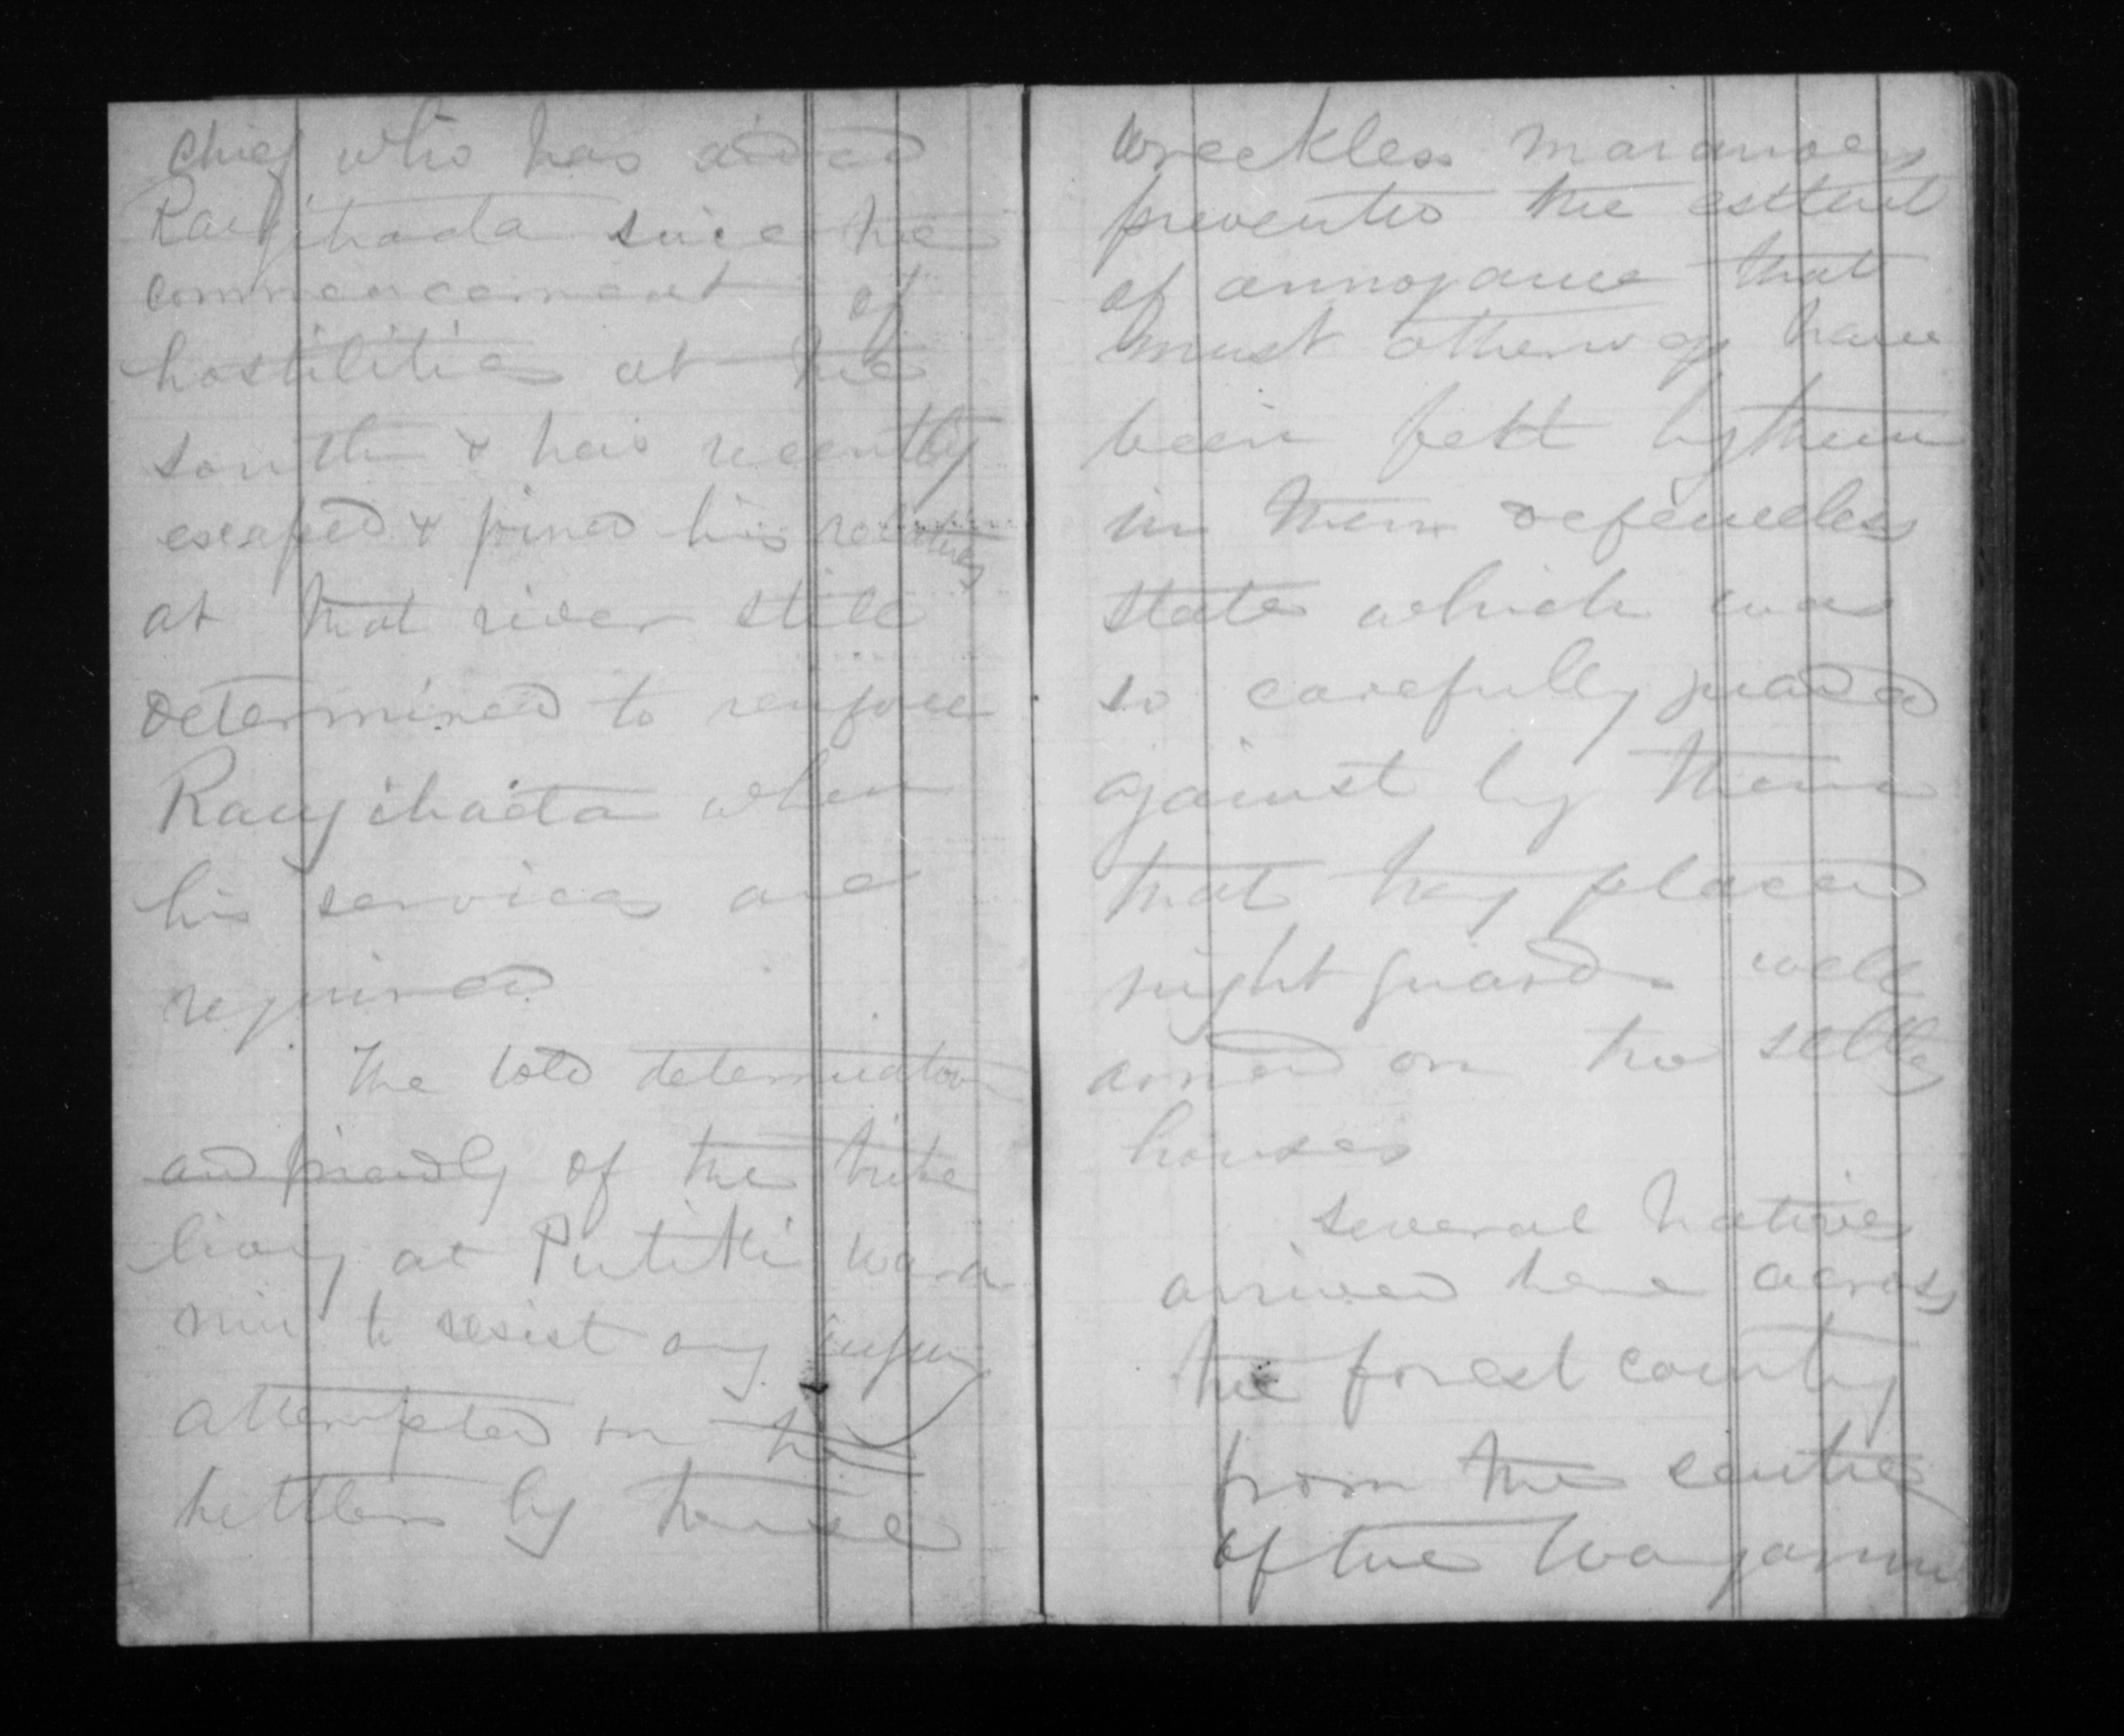 chief who has aided
Rangihaeta since the
commencement of
hostilities at the
south & has recently
escaped & joined his relatives
at that river still
determined to
Rangihaeta when
his services are
required
The bold determination
and friendly of the tribe
living at Putiki Wara
nui to resist any injury
attempted on the
settlers by these
wreckless marauders
prevented the
of annoyance that
must otherway have
been felt by them
in their defenceless
state which was
so carefully guarded
against by them
that they placed
night guards well
armed on the settlers
houses
several natives
arrived here across
the forest country
from the centre
of the Wanganui